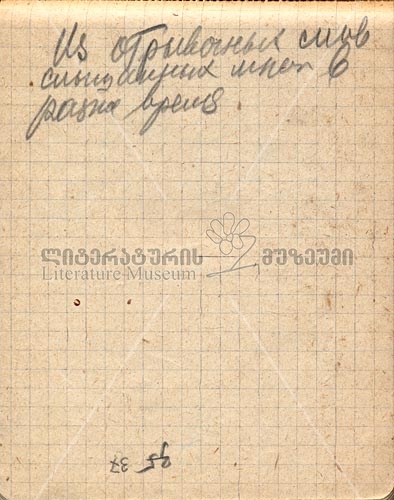 Из отрывочных слов
слышанных мной в
разне время
ლიტერატურის მუზეუმი
Literature Museum
95 37